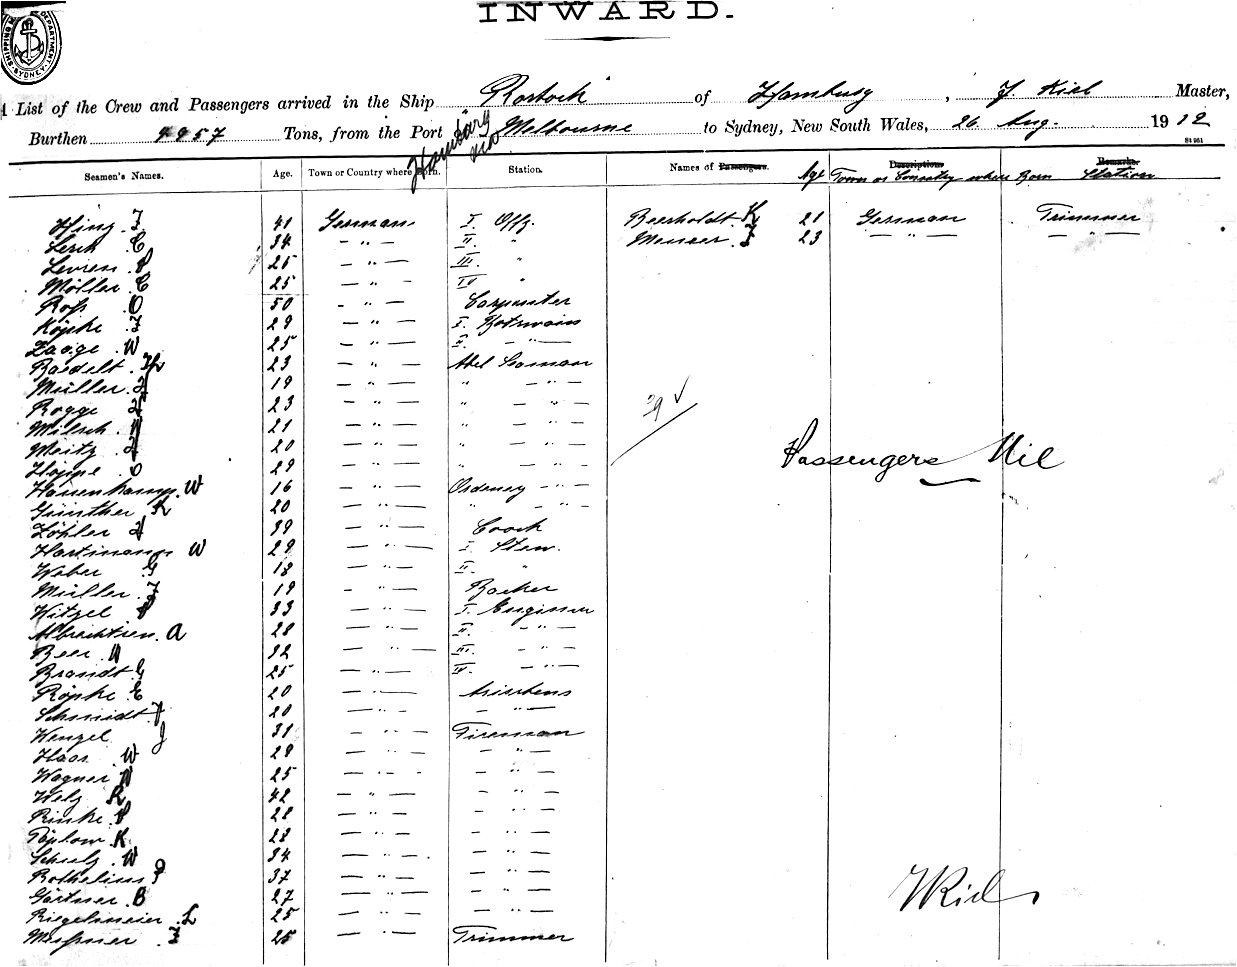 INWARD.
SHIPPING DEPARTMENT. SYDNEY
List of the Crew and Passengers arrived in the Ship Rostock of Hamburg, J. Kiel Master,
Burthen 4957 Tons, from the Port Hamburg via Melbourne to Sydney, New South Wales, 26 Aug. 1912
Seamen's Names. Age. Town or Country where Born. Station. Names of Passengers. Age Description Town or Country where Born Remarks Station
41 German I. Offz. Beerholdt K 21 German Trimmer
Lerch C 34 – " – II. " 23 – " – – " –
Levren 25 – " – III. "
Möller C 25 – " – IV "
Roß O 50 – " – Carpenter
Köpke 29 – " – I. Botswain
Zaage W 25 – " – II. – " –
Baedelt 23 – " – Abel Seaman
Müller 19 – " – " – " –
Rogge 23 – " – " – " –
Milsch 21 – " – " – " –
Meitz 20 – " – " – " –
Höppe O 29 – " – " – " –
Hassenkamp. W 16 – " – Ordeney – " –
Günther K 20 – " – " – " –
Zöhler 39 – " – Coock
Hartmann W 29 – " – I. Stew.
Weber G 18 – " – II. "
Müller 19 – " – Backer
Witzel 33 – " – I. Enginer
Albrechtsen. A 28 – " – II. – " –
Beer 32 – " – III. – " –
Brandt G 25 – " – IV. – " –
Röpke E 20 – " – Assistens
Schmidt 20 – " – – " –
Wenzel J 31 – " – Fireman
Haas W 29 – " – – " –
Wagner 25 – " – – " –
Welz K 42 – " – – " –
Rinke 28 – " – – " –
Töplow K 28 – " – – " –
Schulz W 34 – " – – " –
Rothelius 37 – " – – " –
Gärtner B 27 – " – – " –
Riegelmeier L 25 – " – – " –
Meißner 25 – " – Trimmer
39 ✓
Passengers Nil
J Kiel